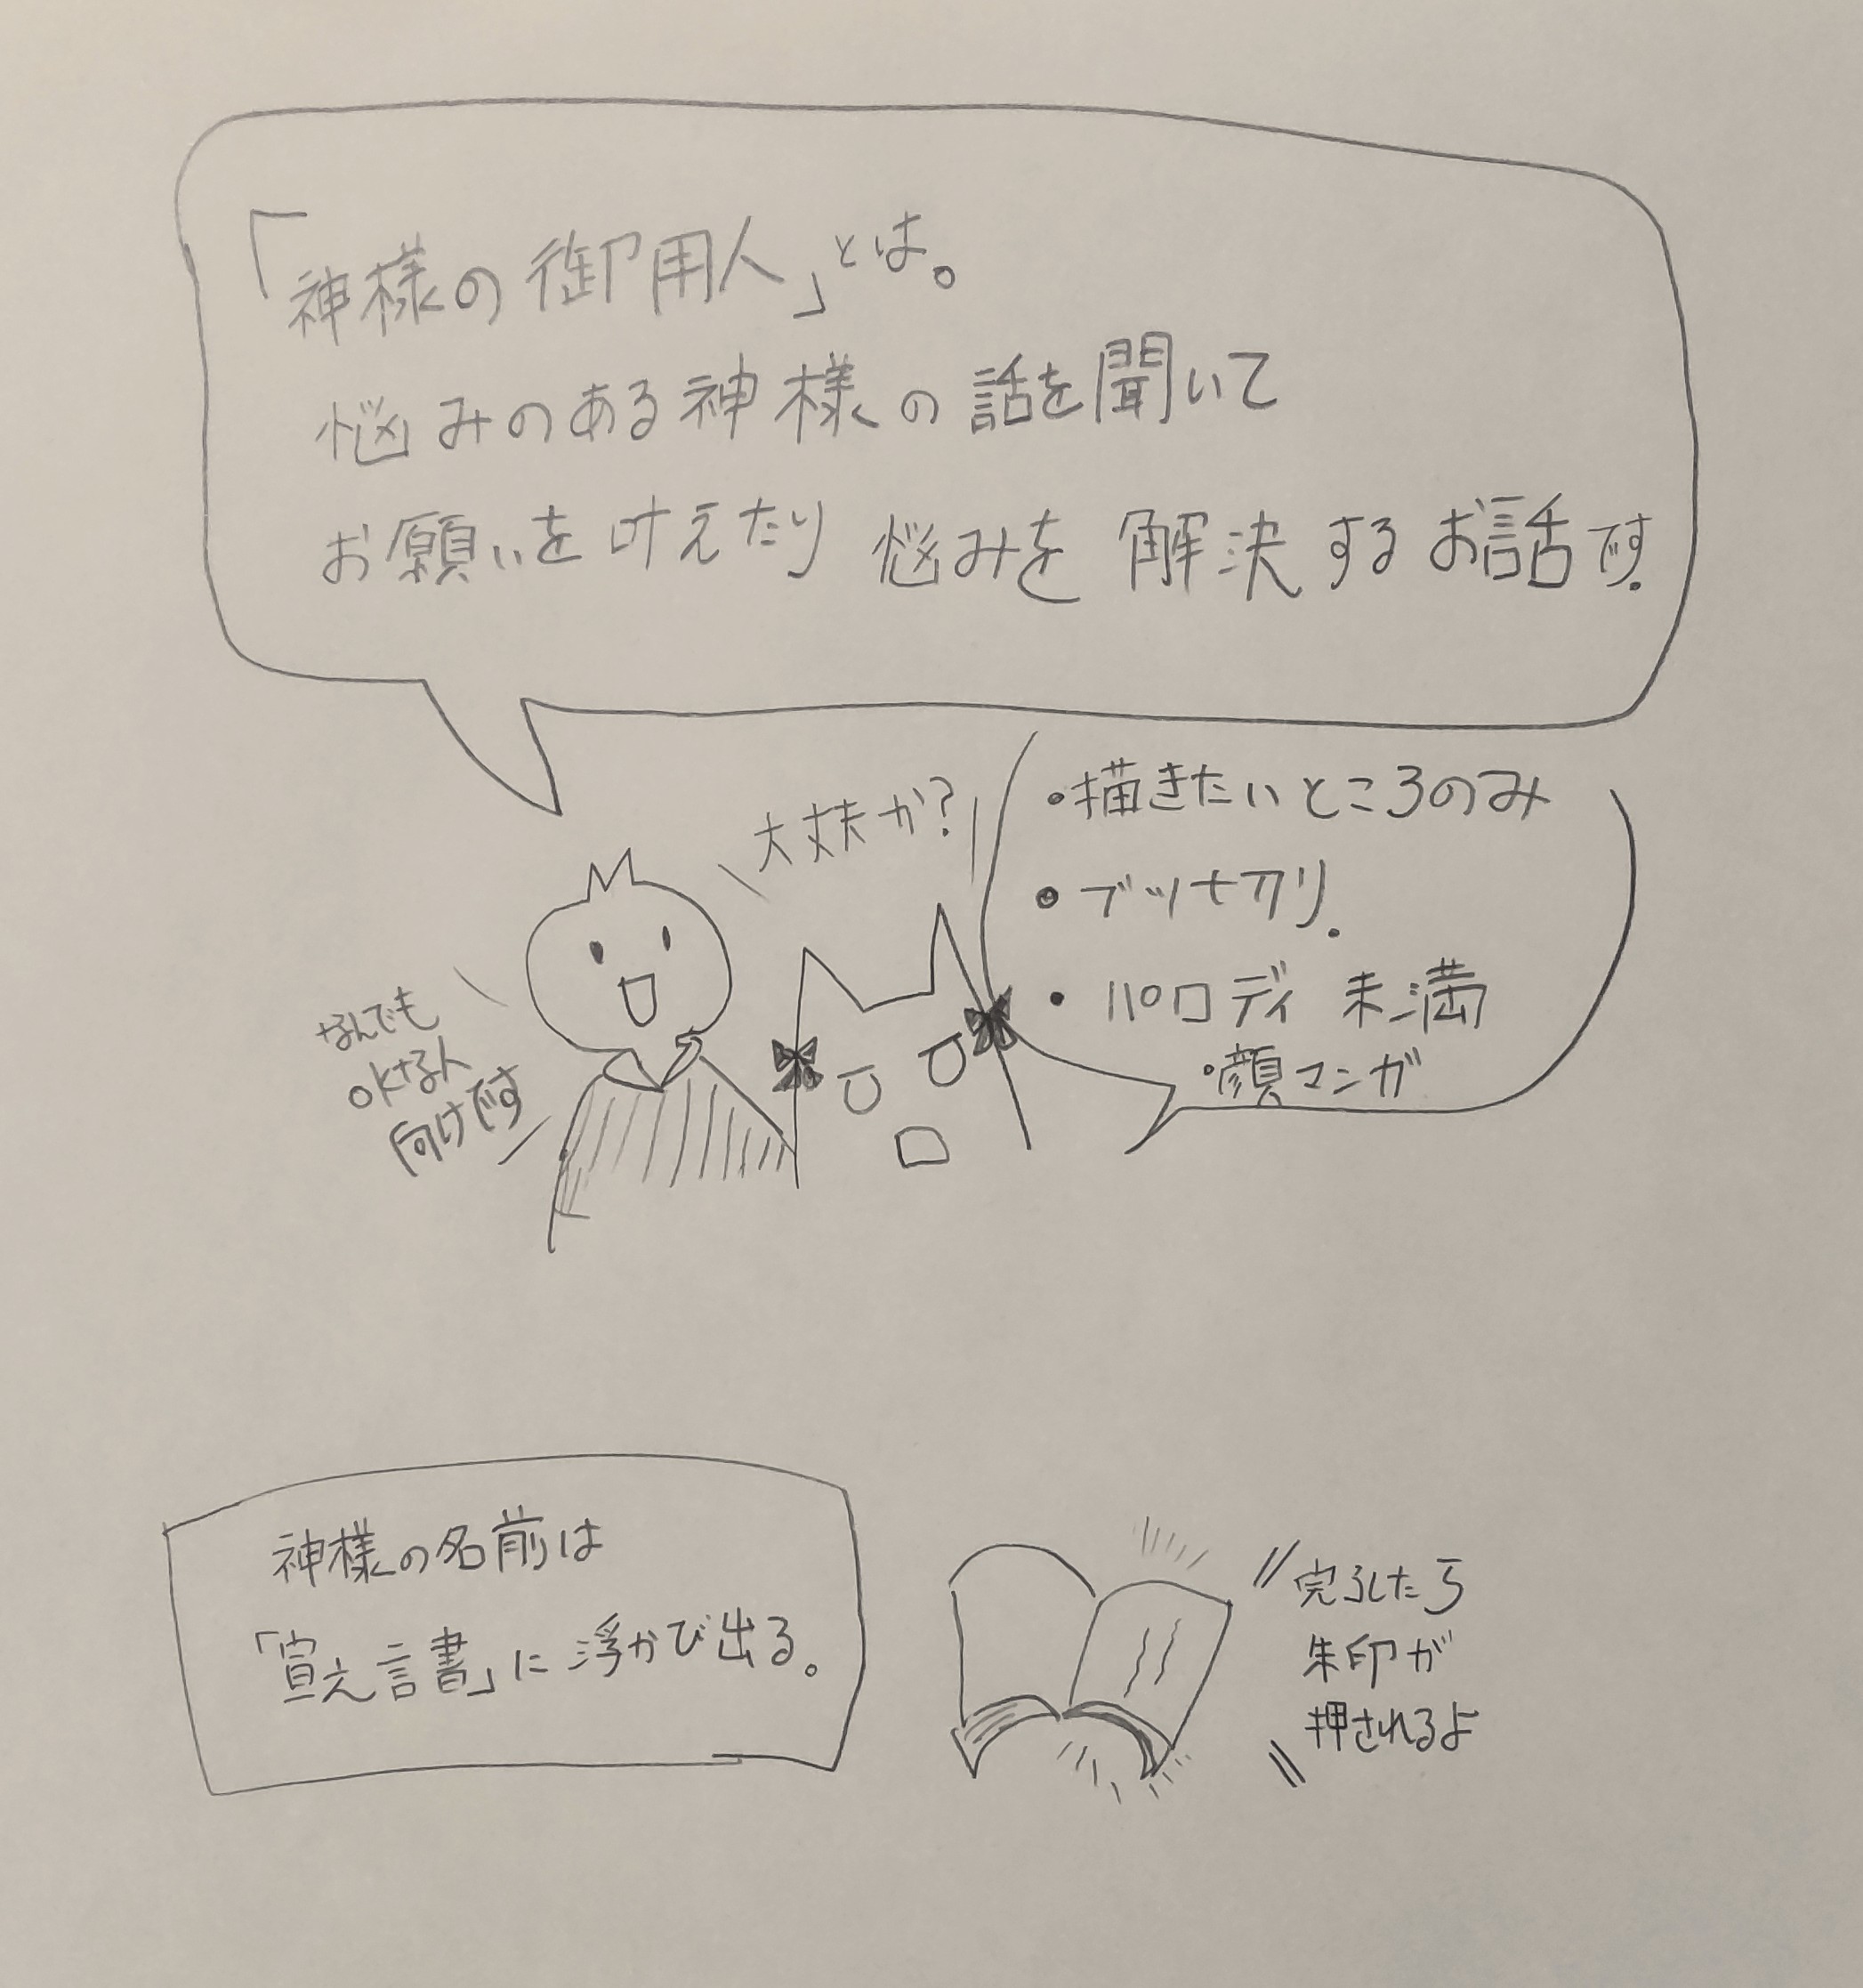 「神様の御用人」とは。
悩みのある神様の話を聞いて
お願いを叶えたり悩みを解決するお話です.
大丈夫か?
・描きたいところのみ
・ブツ切り.
・パロディ未満
・顔マンガ
なんでも
OKな人
向けです
神様の名前は
「宣之言書」に浮かび出る。
完了したら
朱印が
押されるよ